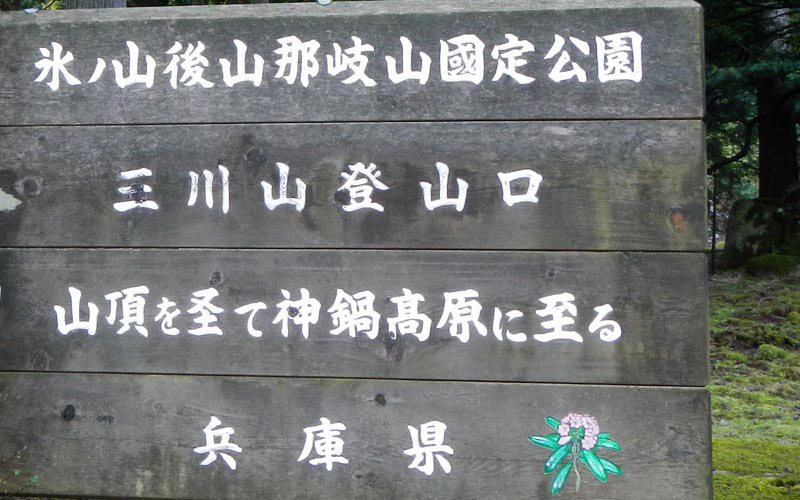 氷ノ山後山那岐山國定公園
三川山登山口
山頂を圣て神鍋高原に至る
兵庫県